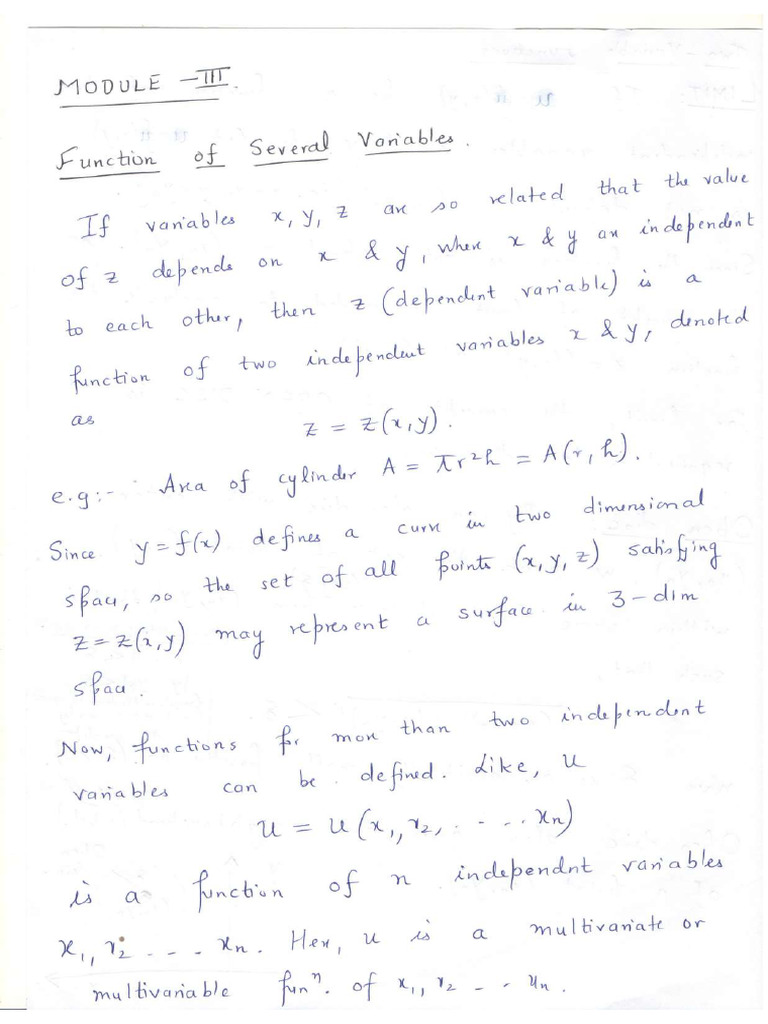 MODULE - III.
Function of Several Variables.
If variables x, y, z are so related that the value
of z depends on x & y, where x & y are independent
to each other, then z (dependent variable) is a
function of two independent variables x & y, denoted
as z = z(x,y).
e.g:- Area of cylinder A = πr²h = A(r, h).
Since y = f(x) defines a curve in two dimensional
space, so the set of all points (x, y, z) satisfying
z = z(x,y) may represent a surface in 3-dim
space.
Now, functions for more than two independent
variables can be defined. Like, u
u = u(x₁, x₂, - - - . xₙ)
is a function of n independnt variables
x₁, x₂ - - - xₙ. Here, u is a multivariate or
multivariable funⁿ. of x₁, x₂ - - xₙ.